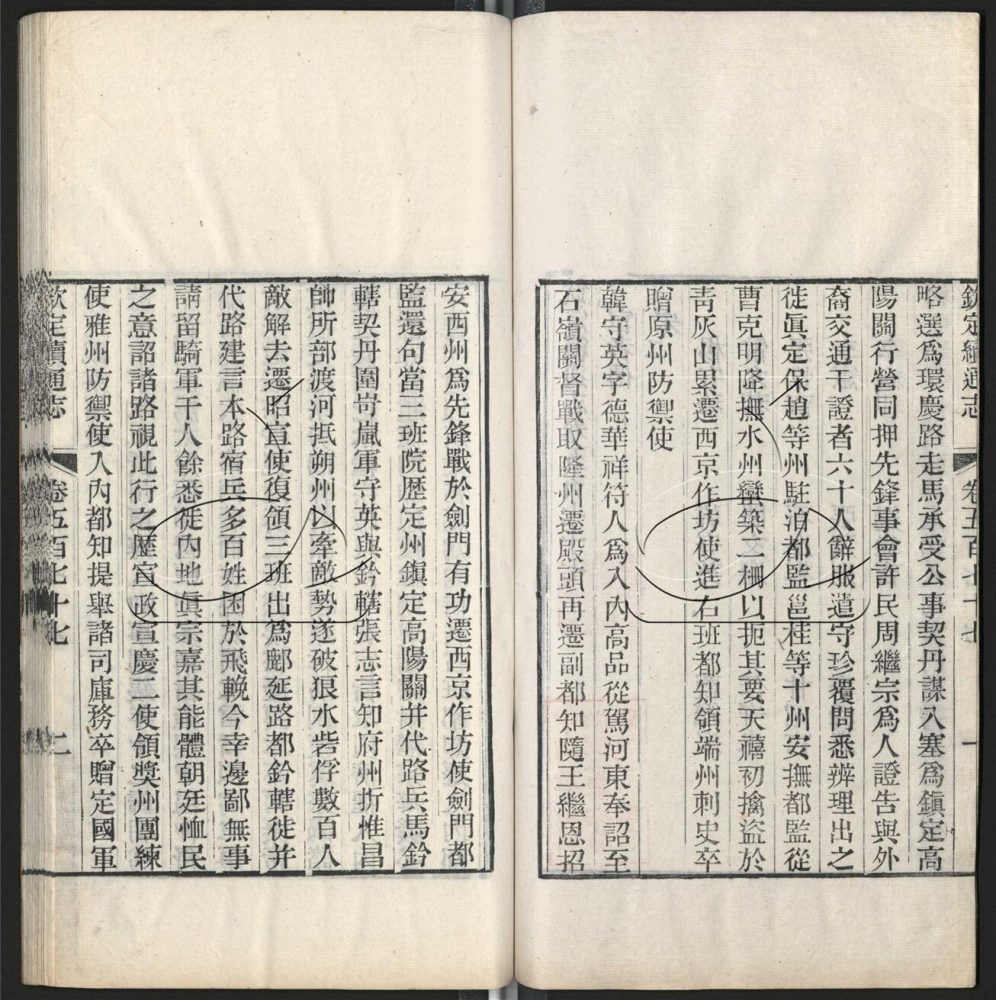 欽定續通志 卷五百七十七 一
略選爲環慶路走馬承受公事契丹謀入塞爲鎭定高
陽關行營同押先鋒事會許民周繼宗爲人證告與外
裔交通干證者六十人辭服遣守珍覆問悉辨理出之
徙眞定保趙等州駐泊都監邕桂等十州安撫都監從
曹克明降撫水州蠻築二柵以扼其要天禧初擒盜於
靑灰山累遷西京作坊使進右班都知領端州刺史卒
贈原州防禦使
韓守英字德華祥符人爲入內高品從駕河東奉詔至
石嶺關督戰取隆州遷殿頭再遷副都知隨王繼恩招
安西州爲先鋒戰於劍門有功遷西京作坊使劍門都
監還句當三班院歷定州鎭定高陽關并代路兵馬鈐
轄契丹圍岢嵐軍守英與鈐轄張志言知府州折惟昌
帥所部渡河抵朔州以牽敵勢遂破狼水砦俘數百人
敵解去遷昭宣使復領三班出爲鄜延路都鈐轄徙并
代路建言本路宿兵多百姓困於飛輓今幸邊鄙無事
請留騎軍千人餘悉徙內地眞宗嘉其能體朝廷恤民
之意詔諸路視此行之歷官政宣慶二使領獎州團練
使雅州防禦使入內都知提舉諸司庫務卒贈定國軍
欽定續通志 卷五百七十七 二